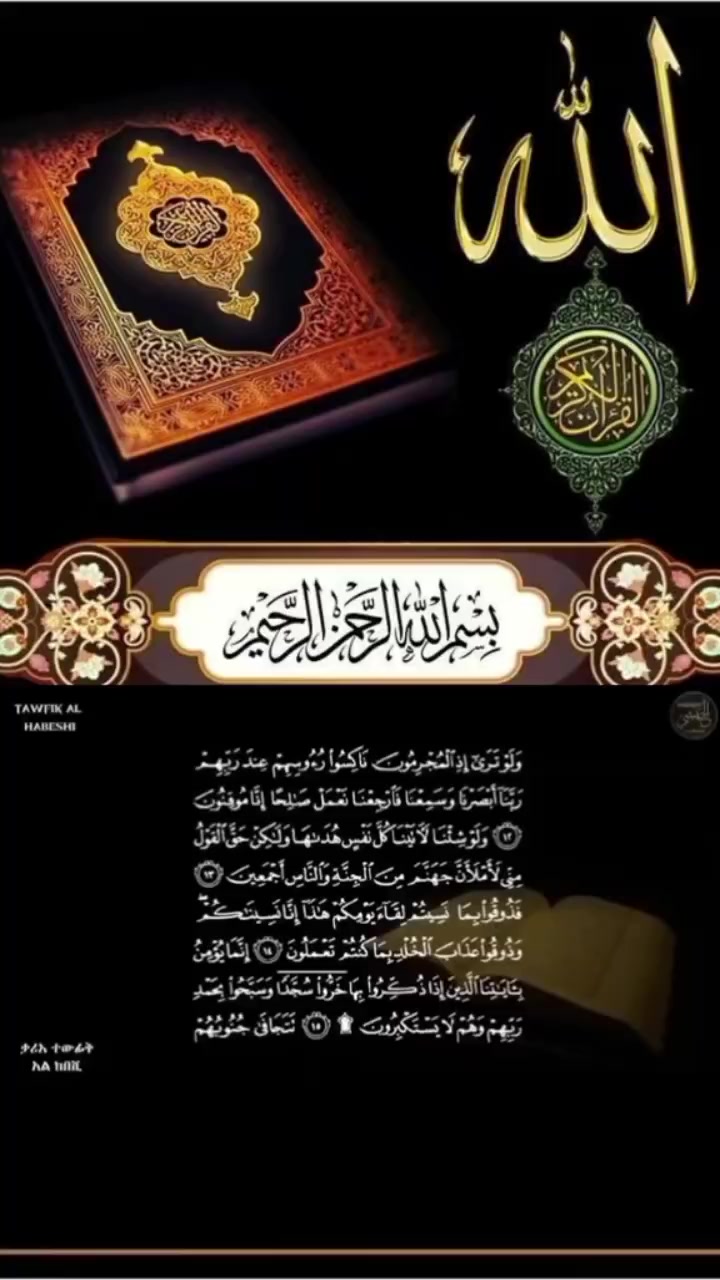 الله
القرآن الكريم
بسم الله الرحمن الرحيم
TAWFIK AL
HABESHI
وَلَوْ تَرَىٰٓ إِذِ ٱلْمُجْرِمُونَ نَاكِسُوا۟ رُءُوسِهِمْ عِندَ رَبِّهِمْ
رَبَّنَآ أَبْصَرْنَا وَسَمِعْنَا فَٱرْجِعْنَا نَعْمَلْ صَـٰلِحًا إِنَّا مُوقِنُونَ
١٢ وَلَوْ شِئْنَا لَـَٔاتَيْنَا كُلَّ نَفْسٍ هُدَىٰهَا وَلَـٰكِنْ حَقَّ ٱلْقَوْلُ
مِنِّى لَأَمْلَأَنَّ جَهَنَّمَ مِنَ ٱلْجِنَّةِ وَٱلنَّاسِ أَجْمَعِينَ ١٣
فَذُوقُوا۟ بِمَا نَسِيتُمْ لِقَآءَ يَوْمِكُمْ هَـٰذَآ إِنَّا نَسِينَـٰكُمْ ۖ
وَذُوقُوا۟ عَذَابَ ٱلْخُلْدِ بِمَا كُنتُمْ تَعْمَلُونَ ١٤ إِنَّمَا يُؤْمِنُ
بِـَٔايَـٰتِنَا ٱلَّذِينَ إِذَا ذُكِّرُوا۟ بِهَا خَرُّوا۟ سُجَّدًا وَسَبَّحُوا۟ بِحَمْدِ
رَبِّهِمْ وَهُمْ لَا يَسْتَكْبِرُونَ ۩ ١٥ تَتَجَافَىٰ جُنُوبُهُمْ
ቃሪእ ተውፊቅ
አል ከበሺ